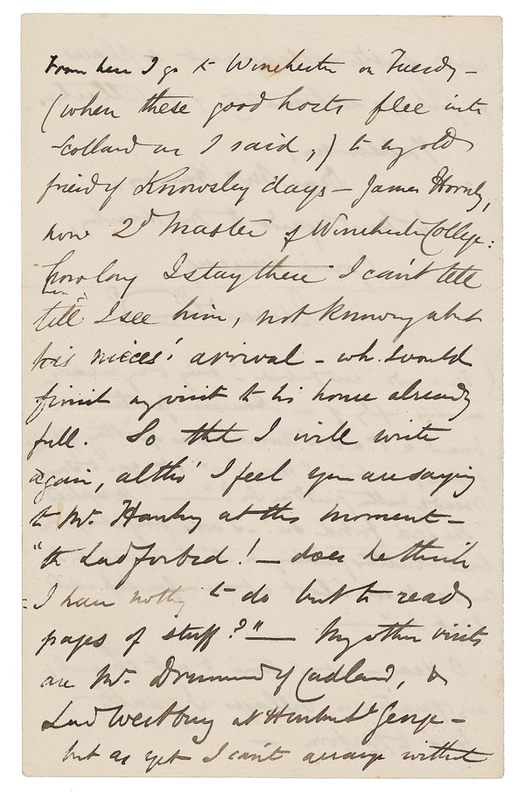 From here I go to Winchester on Tuesdy –
(when these good hosts flee into
Scotland as I said,) to my old
friend of Knowsley days – James Hornby,
now 2d Master of Winchester College:
how long I stay there I can't tell
till I see him, not knowing abt
his nieces' arrival – wh. would
finish my visit to his house already
full. So that I will write
again, altho' I feel you are saying
to Mr. at this moment –
"the Lud forbid! – does he think
I have nothg to do but to read
pages of stuff?" – My other visits
are Mr. Drummond of Cadland, &
Lud Westbury at Hinton St George –
but as yet I can't arrange without